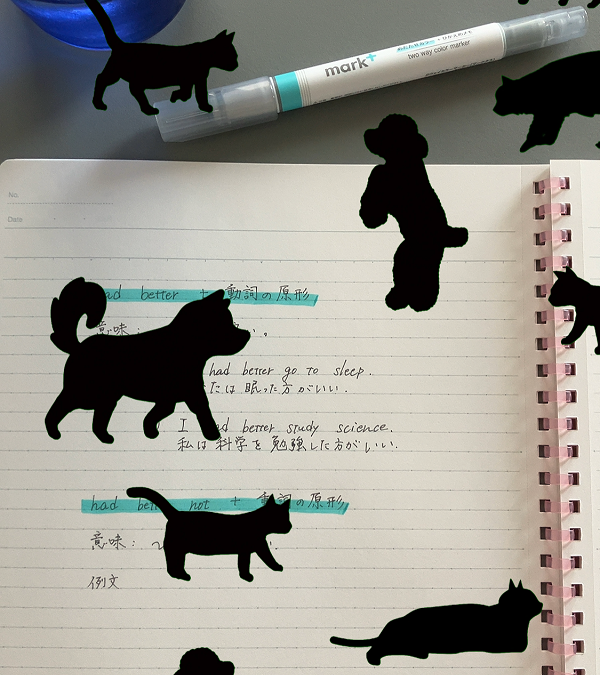 mark+
two way color marker
No.
Date
had better + 動詞の原形
意味: い。
had better go to sleep.
には 眠った方がいい.
I had better study science.
私は 科学を 勉強した方がいい.
had better not + 動詞の原形
意味: 〜
例文